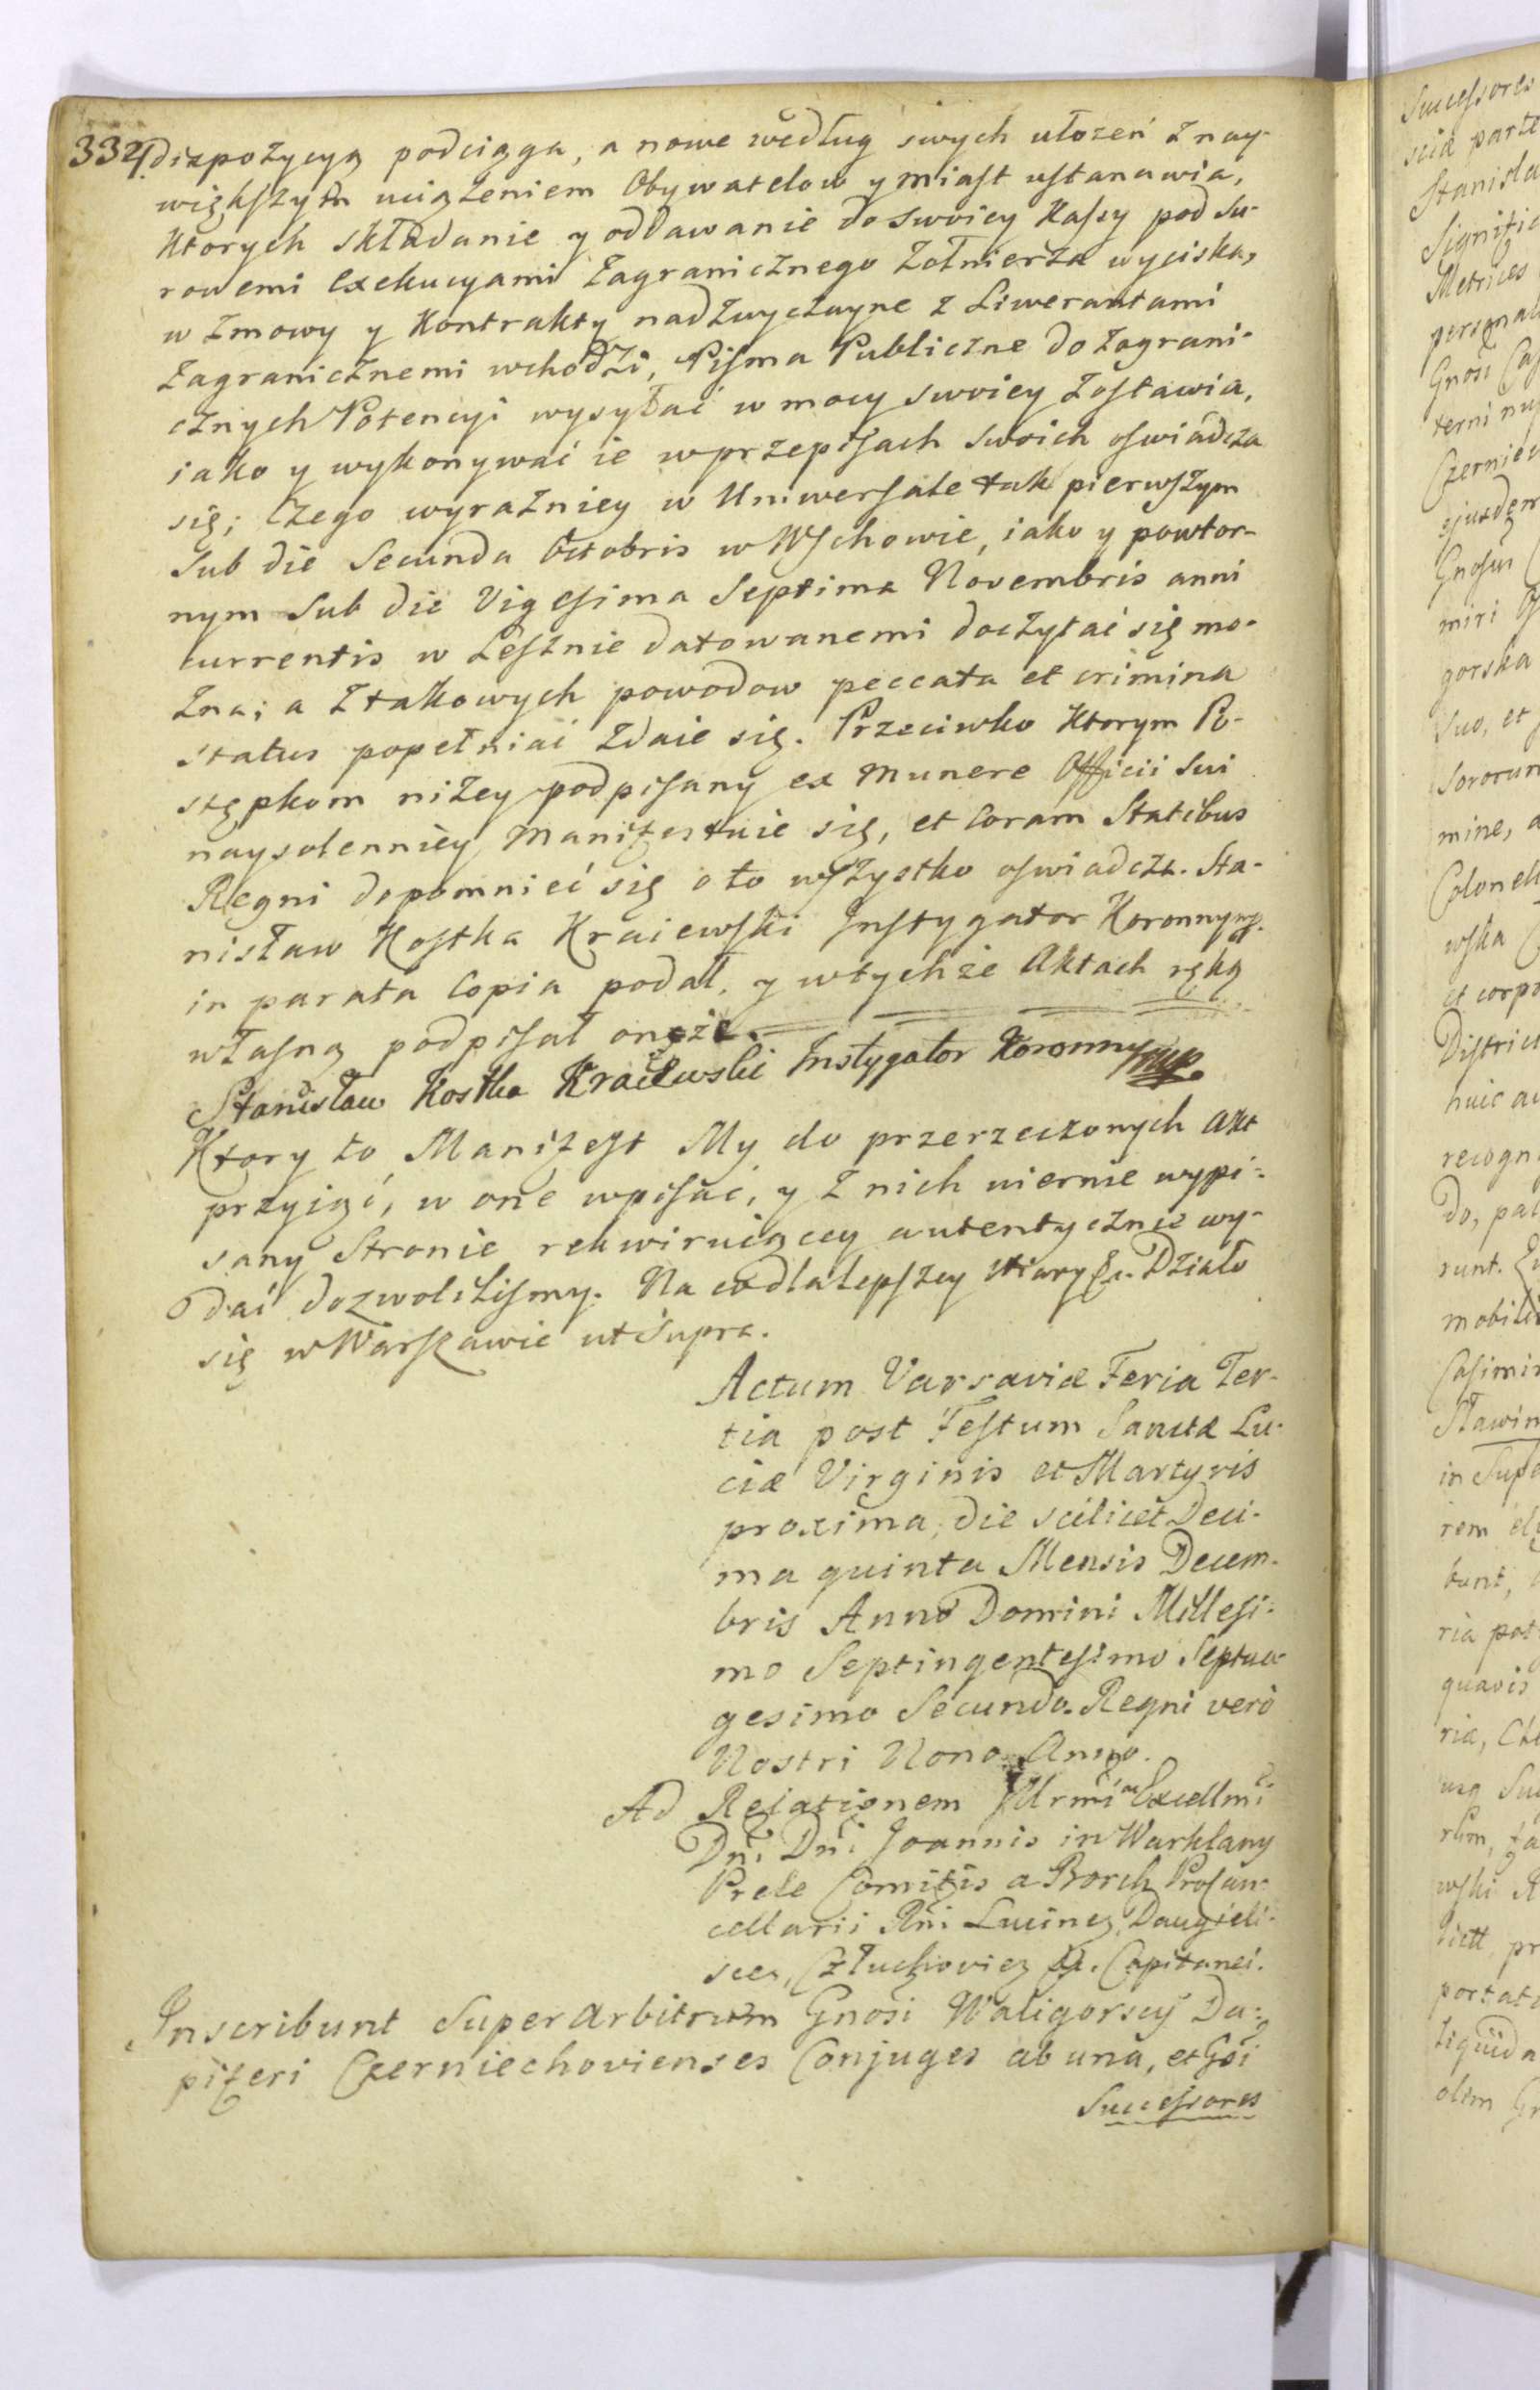 332. dizpozycyą podciąga, a nowe według swych ułożeń z nay-
większym uciążeniem Obywatelow y miast ustanawia,
Ktorych składanie y oddawanie do swoiey Kassy pod su-
rowemi Exekucyami Zagranicznego Zołnierza wyciska,
w Zmowy y Kontrakty nadzwyczayne z Liwerantami
Zagranicznemi wchodzi, Pisma Publiczne do Zagrani-
cznych Potencyi wysyłać w mocy swoiey Zostawia,
iako y wykonywać ie w przepisach swoich oswiadcza
się; Czego wyrazniey w Uniwersale tak pierwszym
sub die Secunda Octobris w Wschowie, iako y powtor-
nym sub die Vigesima Septima Novembris anni
currentis w Lesznie datowanemi doczytać się mo-
zna; a z takowych powodow peccata et crimina
status popełniać zdaie się. Przeciwko Ktorym Po-
stępkom niżey podpisany ex Munere Officii sui
naysolenniey Manifestuie się, et Coram Statibus
Regni dopomnieć się o to wszystko oswiadcza. Sta-
nisław Kostka Kraiewski Instygator Koronny mp.
in parata Copia podał, y w tychże Aktach ręką
własną podpisał onęże.
Stanisław Kostka Kraiewski Instygator Koronny mp.
Ktory to Manifest My do przerzeczonych Akt
przyiąć, w one wpisać, y z nich wiernie wypi-
sany Stronie rekwiruiącey autentycznie wy-
dać dozwoliliśmy. Na co dla lepszey Wiary &c. Działo
się w Warszawie ut supra.
Actum Varsaviæ Feria Ter-
tia post Festum Sanctæ Lu-
ciæ Virginis et Martyris
proxima, die scilicet Deci-
ma quinta Mensis Decem-
bris Anno Domini Millesi-
mo Septingentesimo Septua-
gesimo Secundo. Regni vero
Nostri Nono Anno.
Ad Relationem Illrmi Excellmi
Dni Dni Joannis in Warklany
Prele Comitis a Borch Procan-
cellarii Rni Lucinen, Daugieli-
scen, Człuchovien &c. Capitanei.
Inscribunt Super Arbitrum Gnosi Waligorscy Da-
piferi Czerniechovienses Conjuges ab una, et Gsi
Successores